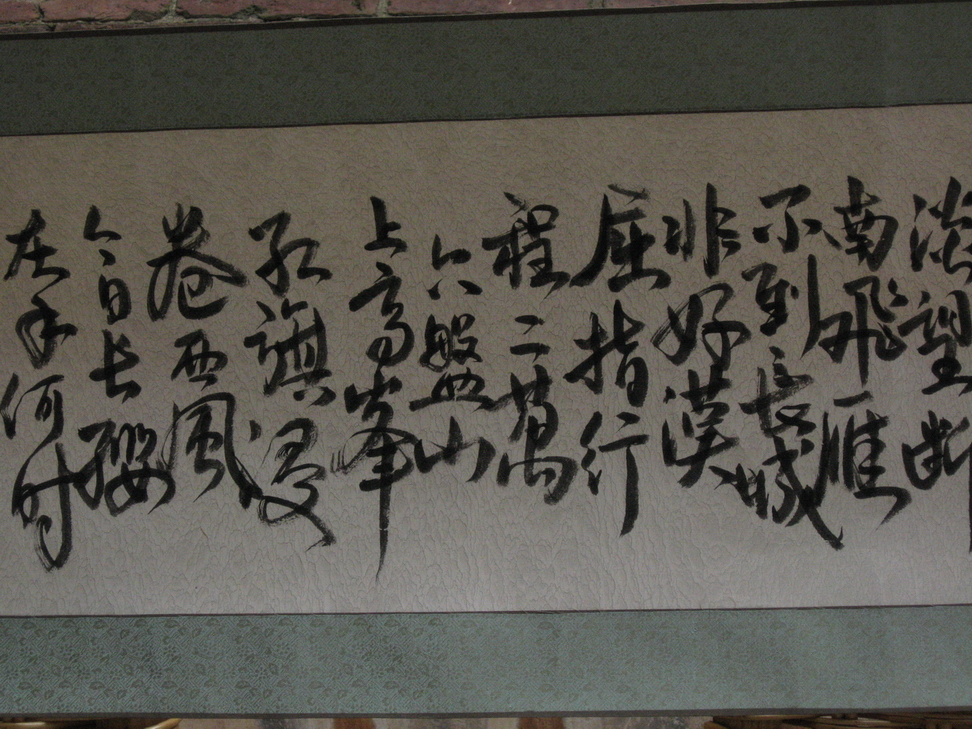 淡望断
南飛雁
不到長城
非好漢
屈指行
程二萬
六盤山
上高峯
紅旗漫
卷西風
今日长纓
在手何时